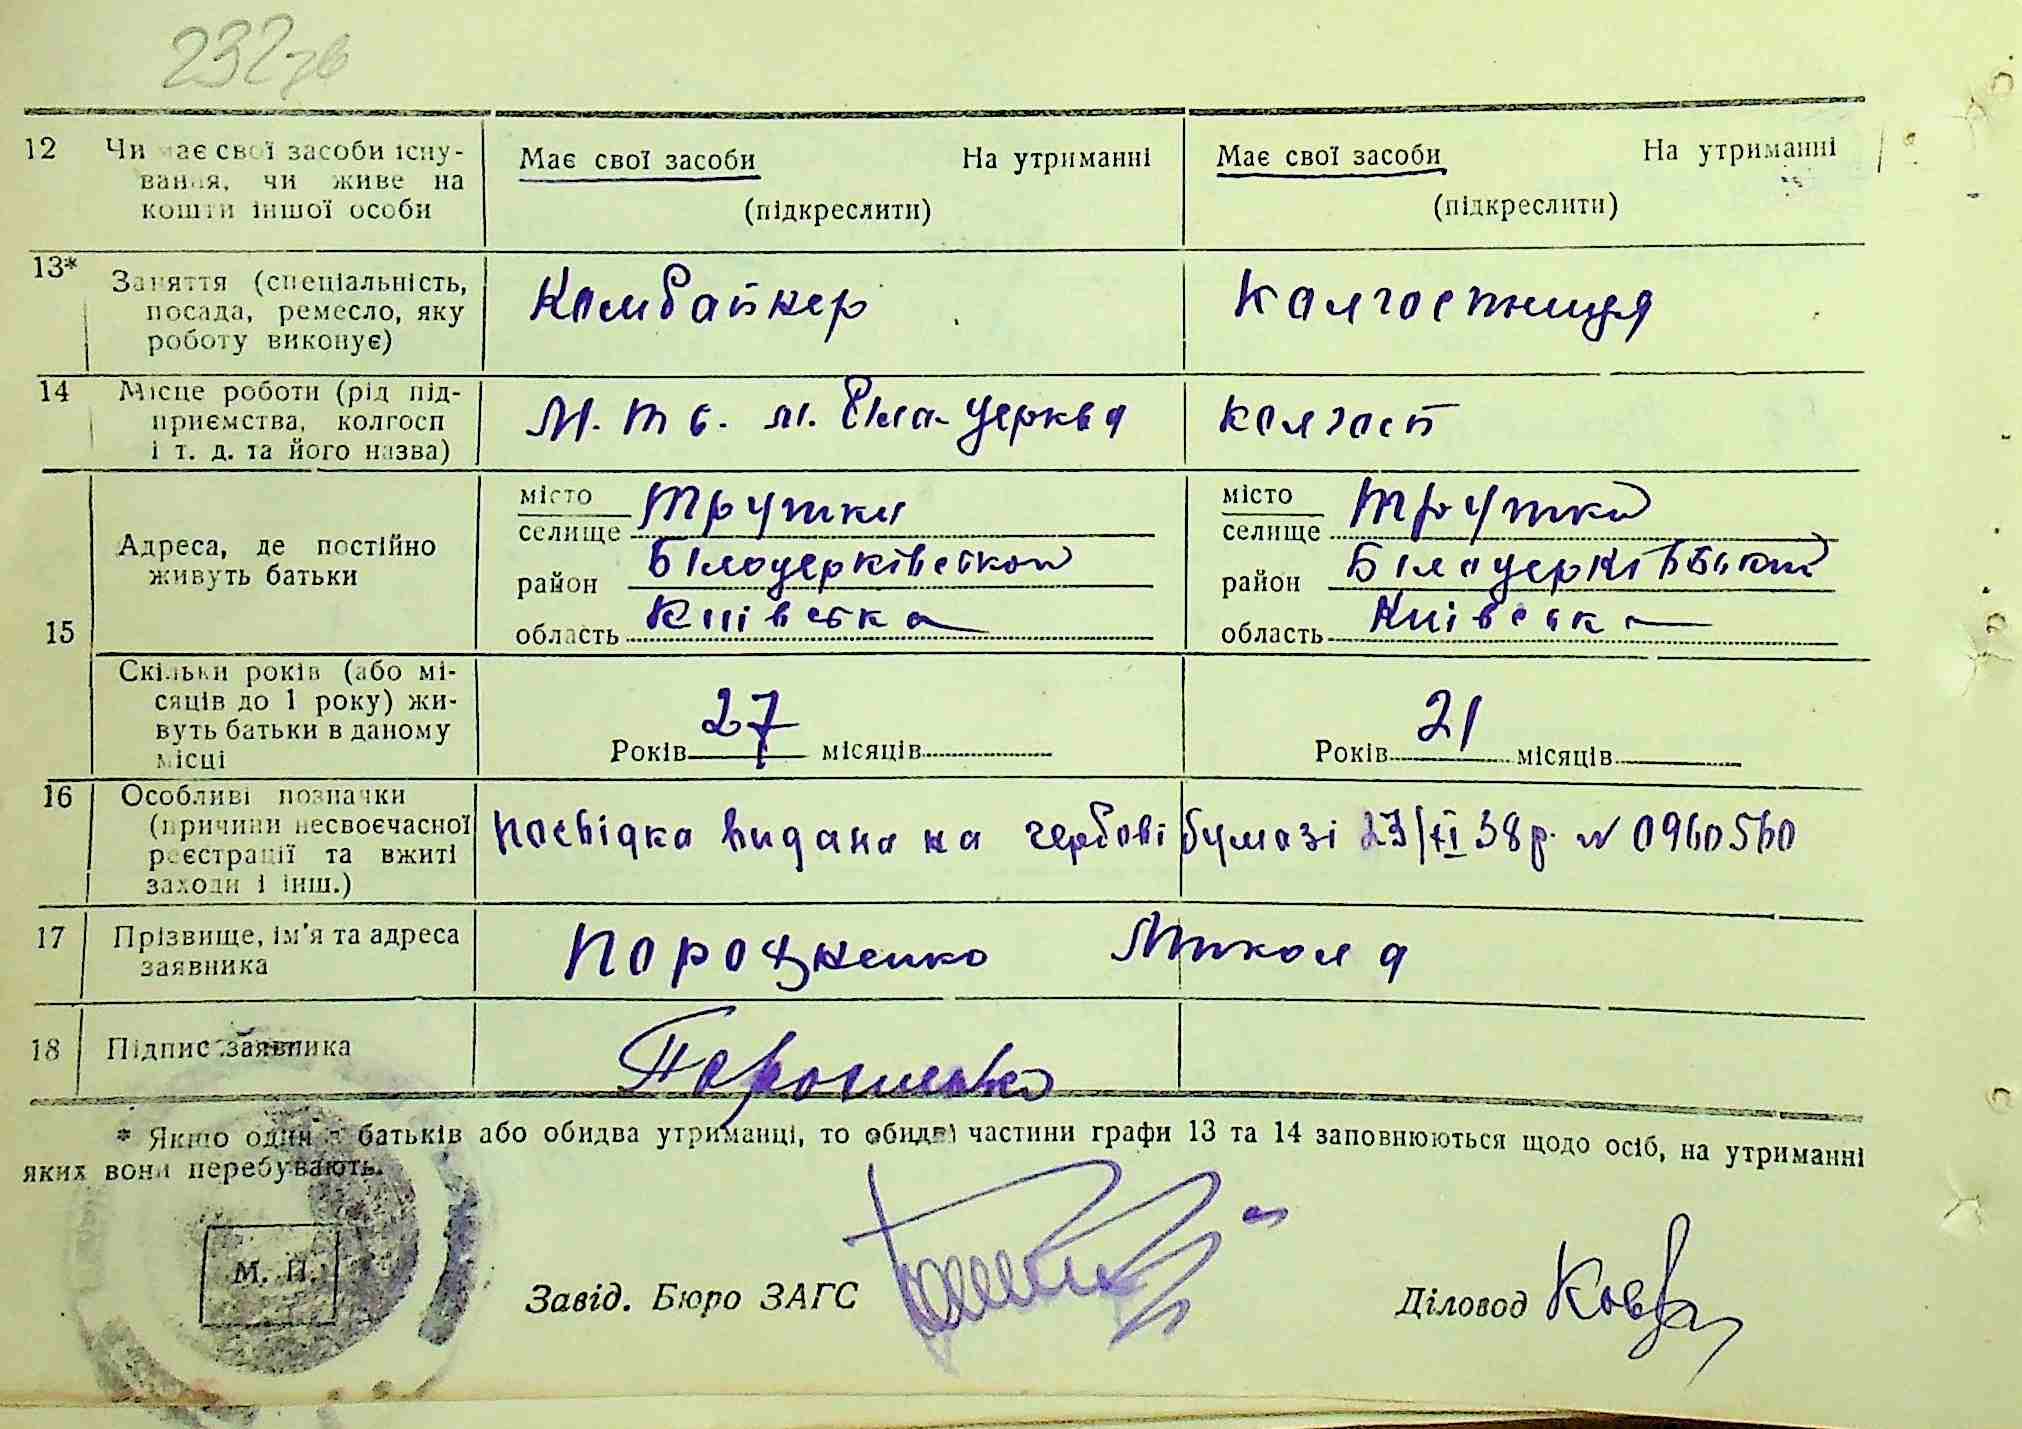 232зв
12 Чи має свої засоби існу-
вання, чи живе на
кошти іншої особи
Має свої засоби На утриманні
(підкреслити)
Має свої засоби На утриманні
(підкреслити)
13* Заняття (спеціальність,
посада, ремесло, яку
роботу виконує)
Комбайнер
Колгоспниця
14 Місце роботи (рід під-
приємства, колгосп
і т. д. та його назва)
М. Т. С. м. Біла-Церква
колгосп
15
Адреса, де постійно
живуть батьки
місто
селище Трушки
район Білоцерківський
область Київська
місто
селище Трушки
район Білоцерківський
область Київська
Скільки років (або мі-
сяців до 1 року) жи-
вуть батьки в даному
місці
Років 27 місяців
Років 21 місяців
16 Особливі позначки
(причини несвоєчасної
реєстрації та вжиті
заходи і інш.)
посвідка видана на гербові бумазі 23/XI 38р. N 0960560
17 Прізвище, ім'я та адреса
заявника
Порошенко Микола
18 Підпис заявника
Порошенко
* Якщо один з батьків або обидва утриманці, то обидві частини графи 13 та 14 заповнюються щодо осіб, на утриманні
яких вони перебувають.
М. П.
Завід. Бюро ЗАГС
Діловод